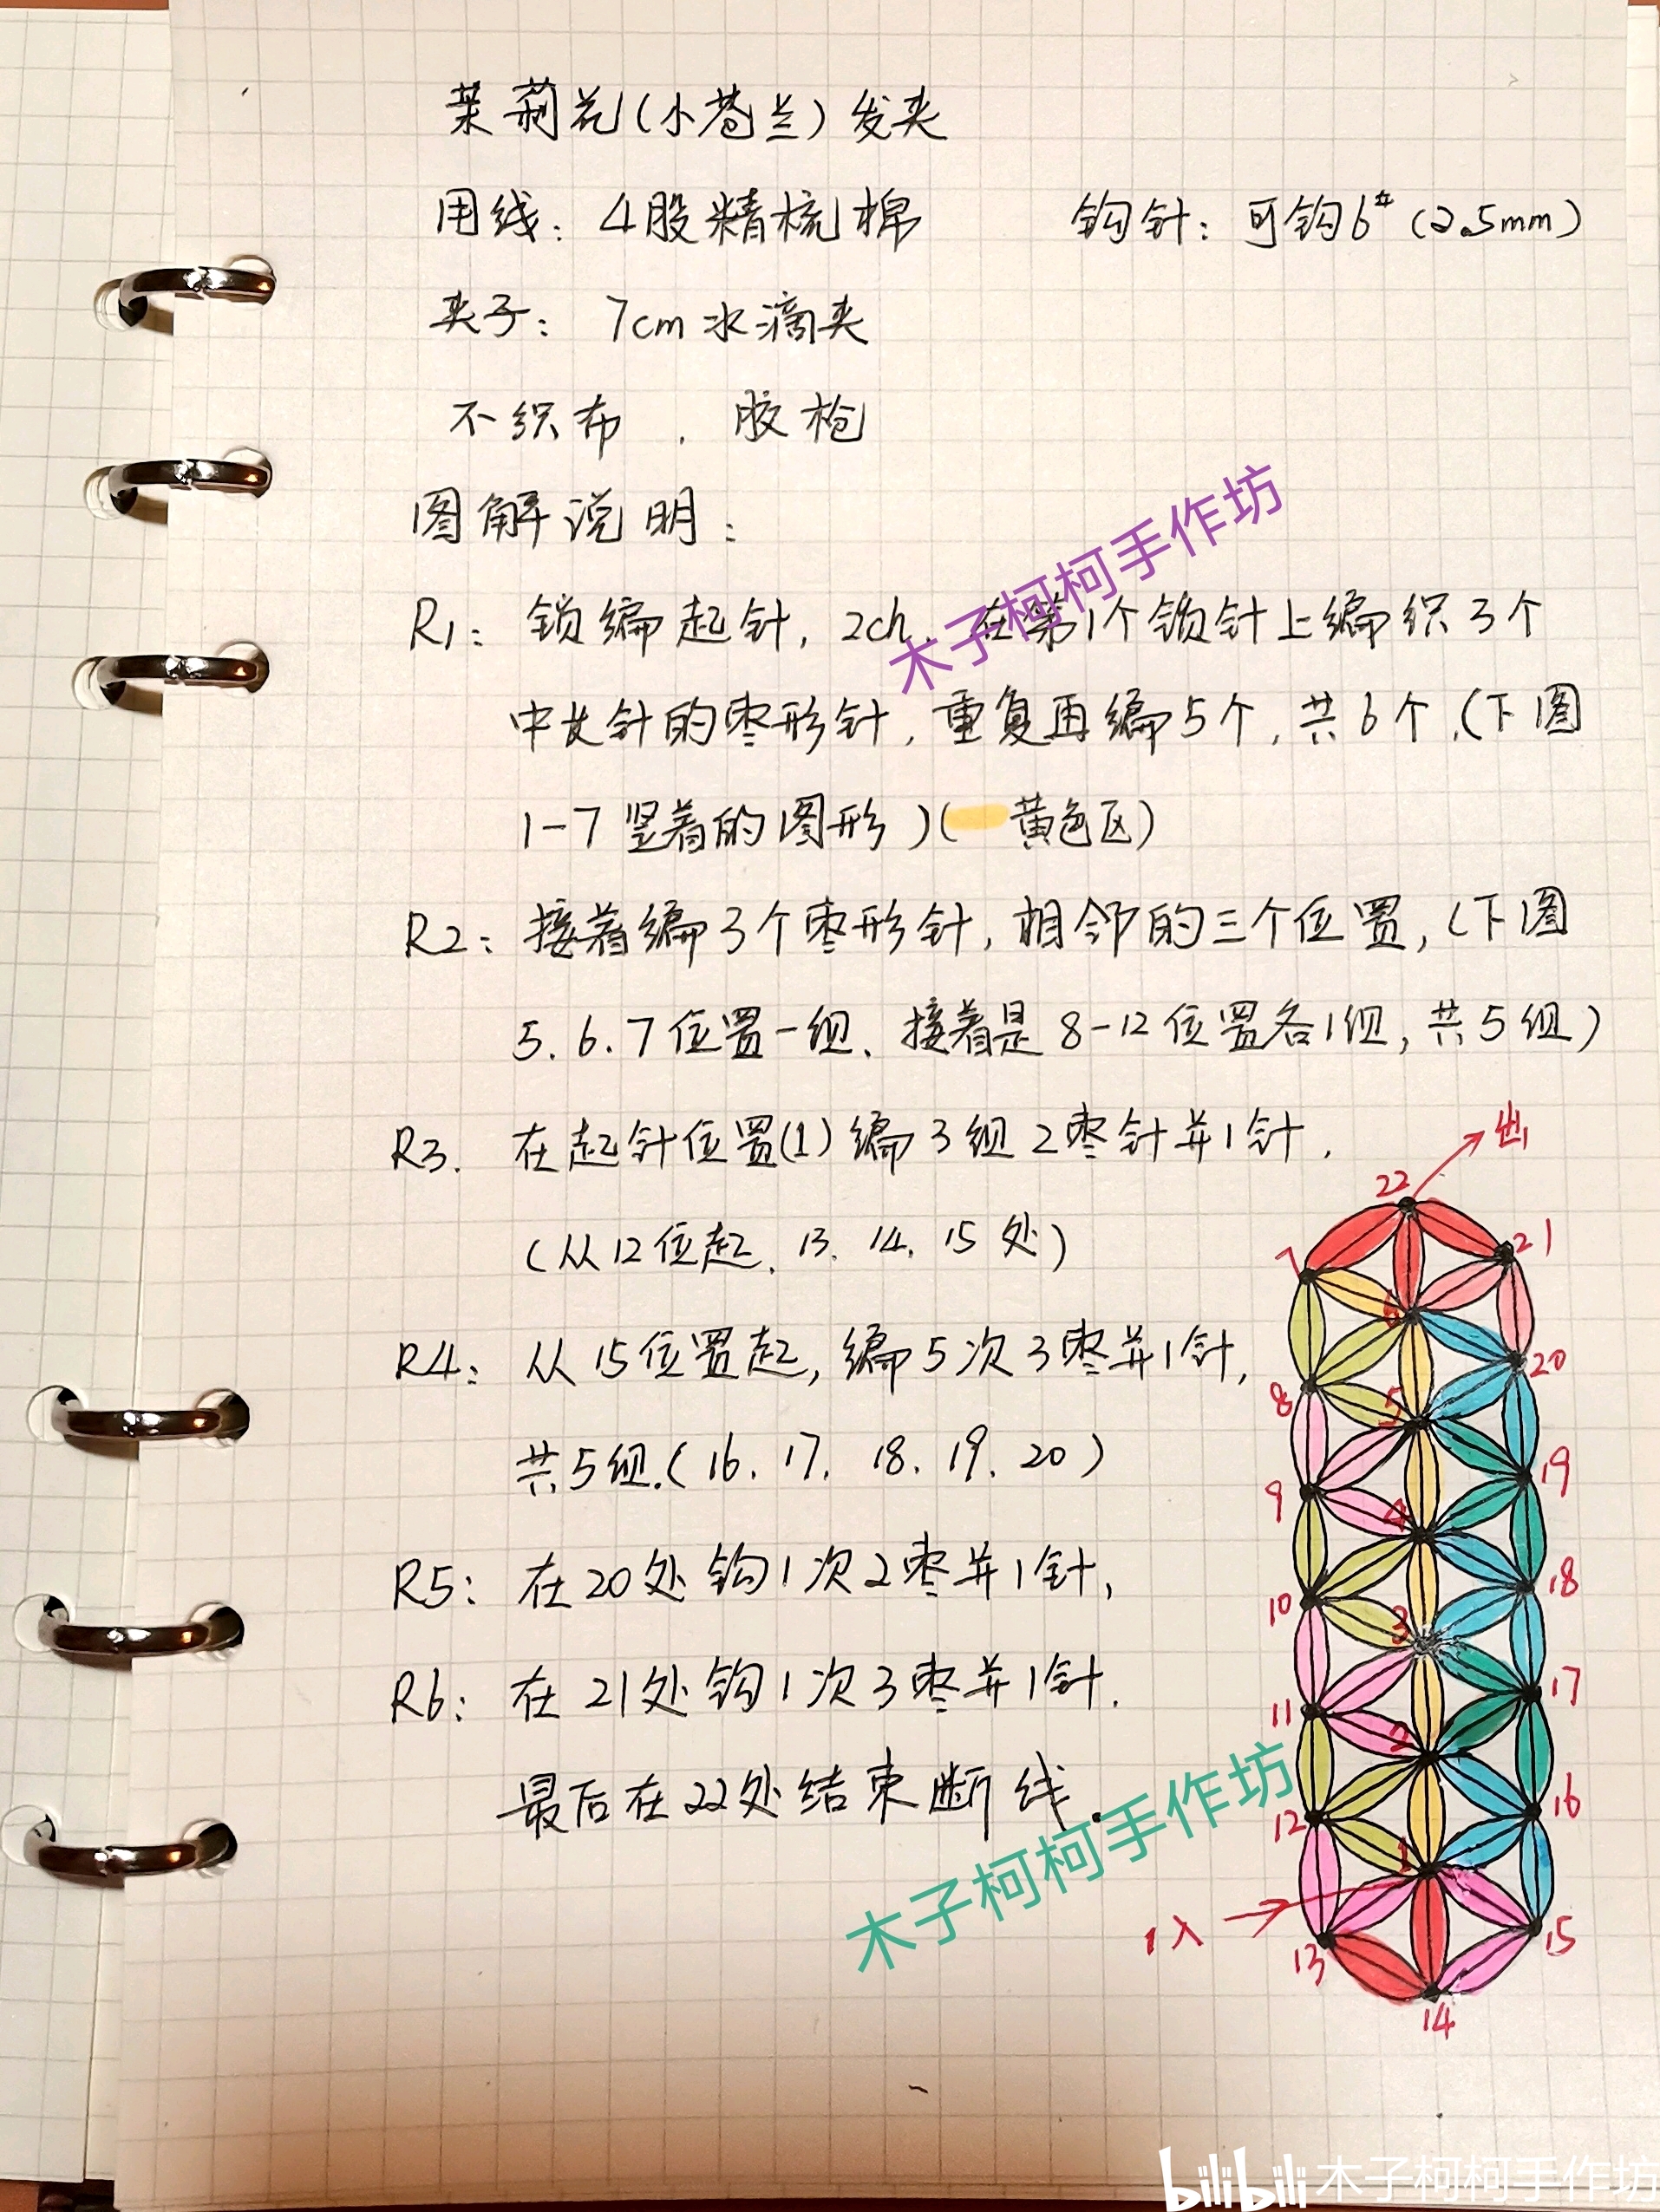 茉莉花(小苍兰)发夹
用线：4股精梳棉 钩针：可钩6# (2.5mm)
夹子：7cm水滴夹
不织布．胶枪
图解说明：
R1：锁编起针，2ch，在第1个锁针上编织3个
中长针的枣形针，重复再编5个，共6个，(下图
1-7竖着的图形)( 黄色区)
R2：接着编3个枣形针，相邻的三个位置，(下图
5、6、7位置一组、接着是8-12位置各1组，共5组)
R3. 在起针位置(1)编3组2枣针并1针，
(从12位起、13、14、15处)
R4：从15位置起，编5次3枣并1针，
共5组.(16、17、18、19、20)
R5：在20处钩1次2枣并1针，
R6：在21处钩1次3枣并1针.
最后在22处结束断线.
出
22
7
21
6
20
8
5
19
9
4
18
10
3
17
11
2
16
12
1
入
13
15
14
木子柯柯手作坊
木子柯柯手作坊
bilibili 木子柯柯手作坊